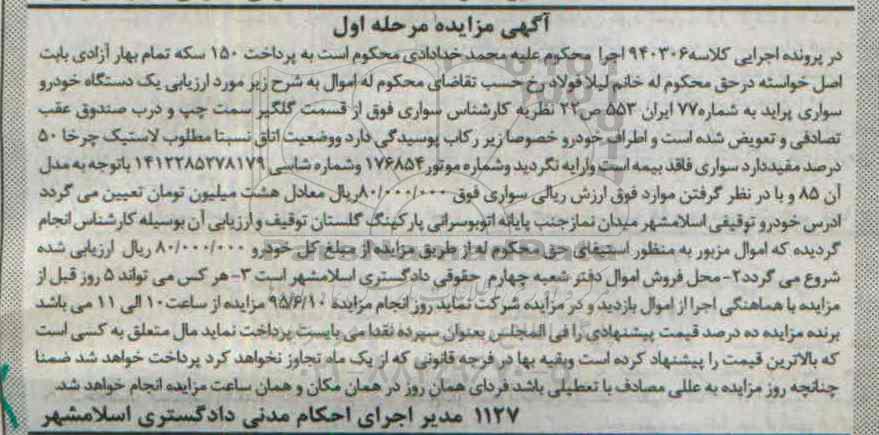 آگهی مزایده مرحله اول
در پرونده اجرایی کلاسه۹۴۰۳۰۶ اجرا محکوم علیه محمد خدادادی محکوم است به پرداخت ۱۵۰ سکه تمام بهار آزادی بابت
اصل خواسته درحق محکوم له خانم لیلا فولاد رخ حسب تقاضای محکوم له اموال به شرح زیر مورد ارزیابی یک دستگاه خودرو
سواری پراید به شماره۷۷ ایران ۵۵۳ ص۲۲ نظریه کارشناس سواری فوق از قسمت گلگیر سمت چپ و درب صندوق عقب
تصادفی و تعویض شده است و اطراف خودرو خصوصا زیر رکاب پوسیدگی دارد ووضعیت اتاق نسبتا مطلوب لاستیک چرخا ۵۰
درصد مفیددارد سواری فاقد بیمه است وارایه نگردید وشماره موتور۱۷۶۸۵۴ وشماره شاسی ۱۴۱۲۲۸۵۲۷۸۱۷۹ باتوجه به مدل
آن ۸۵ و با در نظر گرفتن موارد فوق ارزش ریالی سواری فوق ۸۰/۰۰۰/۰۰۰ریال معادل هشت میلیون تومان تعیین می گردد
ادرس خودرو توقیفی اسلامشهر میدان نمازجنب پایانه اتوبوسرانی پارکینگ گلستان توقیف و ارزیابی آن بوسیله کارشناس انجام
گردیده که اموال مزبور به منظور استیفای حق محکوم له از طریق مزایده از مبلغ کل خودرو ۸۰/۰۰۰/۰۰۰ ریال ارزیابی شده
شروع می گردد۲-محل فروش اموال دفتر شعبه چهارم حقوقی دادگستری اسلامشهر است ۳-هر کس می تواند ۵ روز قبل از
مزایده با هماهنگی اجرا از اموال بازدید و در مزایده شرکت نماید روز انجام مزایده ۹۵/۶/۱۰ مزایده از ساعت۱۰ الی ۱۱ می باشد
برنده مزایده ده درصد قیمت پیشنهادی را فی المجلس بعنوان سپرده نقدا می بایست پرداخت نماید مال متعلق به کسی است
که بالاترین قیمت را پیشنهاد کرده است وبقیه بها در فرجه قانونی که از یک ماه تجاوز نخواهد کرد پرداخت خواهد شد ضمنا
چنانچه روز مزایده به عللی مصادف با تعطیلی باشد فردای همان روز در همان مکان و همان ساعت مزایده انجام خواهد شد.
۱۱۲۷ مدیر اجرای احکام مدنی دادگستری اسلامشهر